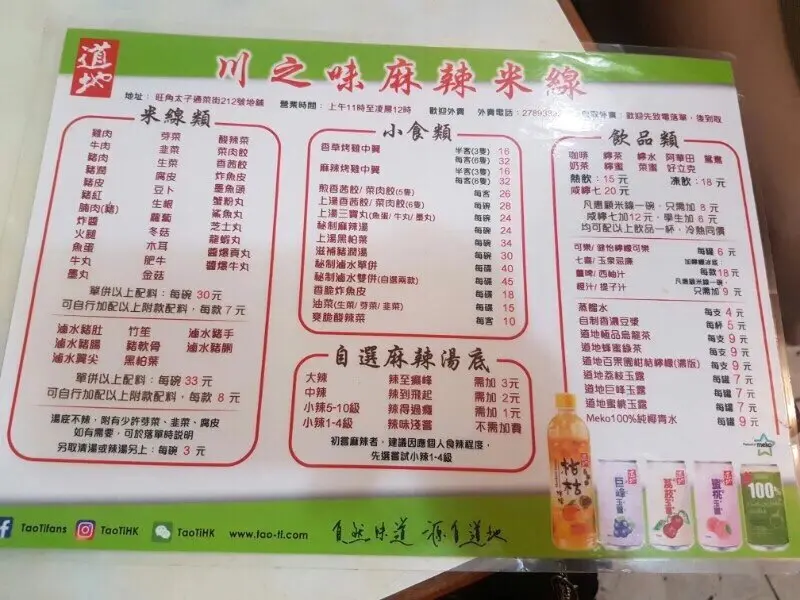 道地
川之味麻辣米線
地址： 旺角太子通菜街212號地舖 營業時間：上午11時至凌晨12時 歡迎外賣 外賣電話：2789 自取外賣：歡迎先致電落單，後到取
米線類
雞肉 芽菜 酸辣菜
牛肉 韭菜 菜肉餃
豬肉 生菜 香茜餃
豬潤 腐皮 炸魚皮
豬皮 豆卜 墨魚頭
豬紅 生根 蟹粉丸
腩肉(豬) 蘿蔔 鯊魚丸
炸醬 冬菇 芝士丸
火腿 木耳 龍蝦丸
魚蛋 肥牛 醬爆貢丸
牛丸 金菇 醬爆牛丸
墨丸
單併以上配料：每碗 30 元
可自行加配以上附款配料，每款 7 元
滷水豬肚 竹笙 滷水豬手
滷水豬腸 豬軟骨 滷水豬脷
滷水翼尖 黑柏葉
單併以上配料：每碗 33 元
可自行加配以上附款配料，每款 8 元
湯底不辣，附有少許芽菜、韭菜、腐皮
如有需要，可於落單時説明
另取清湯或辣湯另上：每碗 3 元
小食類
香草烤雞中翼 半客(3隻) 16
每客(6隻) 32
麻辣烤雞中翼 半客(3隻) 16
每客(6隻) 32
煎香茜餃/ 菜肉餃(6隻) 每客 26
上湯香茜餃/ 菜肉餃(6隻) 每碗 28
上湯三寶丸(魚蛋/ 牛丸/ 墨丸) 每碗 24
秘制麻辣湯 每碗 24
上湯黑柏葉 每碗 34
滋補豬潤湯 每碗 30
秘制滷水單併 每碟 40
秘制滷水雙併(自選兩款) 每碟 45
香脆炸魚皮 每碟 18
油菜(生菜/ 芽菜/ 韭菜) 每碟 15
爽脆酸辣菜 每客 10
自選麻辣湯底
大辣 辣至癲峰 需加 3元
中辣 辣到飛起 需加 2元
小辣5-10級 辣得過癮 需加 1元
小辣1-4級 辣味淺嘗 不需加費
初嘗麻辣者，建議因應個人食辣程度，
先選嘗試小辣1-4級
飲品類
咖啡 檸茶 檸水 阿華田 鴛鴦
奶茶 檸蜜 菜蜜 好立克
熱飲：15 元 凍飲：18 元
咸檸七 20 元
凡惠顧米線一碗，只需加 8 元
咸檸七加12 元，學生加 6 元
均可配以上飲品一杯，冷熱同價
可樂/ 健怡檸檬可樂 每罐 6 元
七喜/ 玉泉忌廉
薑啤/ 西柚汁 每款18 元
橙汁/ 提子汁 凡惠顧米線一碗，
只需加 9 元
蒸餾水 每支 4 元
自制香濃豆漿 每杯 5 元
道地極品烏龍茶 每支 9 元
道地蜂蜜綠茶 每支 9 元
道地百果園柑桔檸檬(濃版) 每支 9 元
道地荔枝玉露 每罐 7 元
道地巨峰玉露 每罐 7 元
道地蜜桃玉露 每罐 7 元
Meko100%純椰青水 每罐 9 元
巨峰玉露
荔枝玉露
蜜桃玉露
meko
100%
TaoTifans TaoTiHK TaoTiHK www.tao-ti.com 自然味道 源自道地